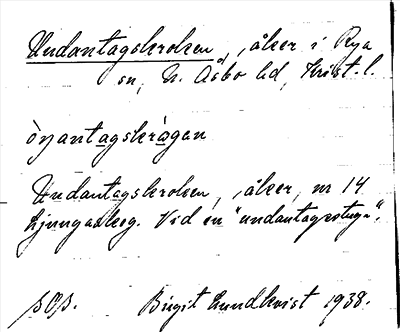 Undantagskroken, åker i Rya
sn, N. Åsbo hd, Krist. l.
ònantagskrògan
Undantagskroken, åker, nr 14
Ljungaskog. Vid en "undantagsstuga".
Birgit Lundkvist 1938.